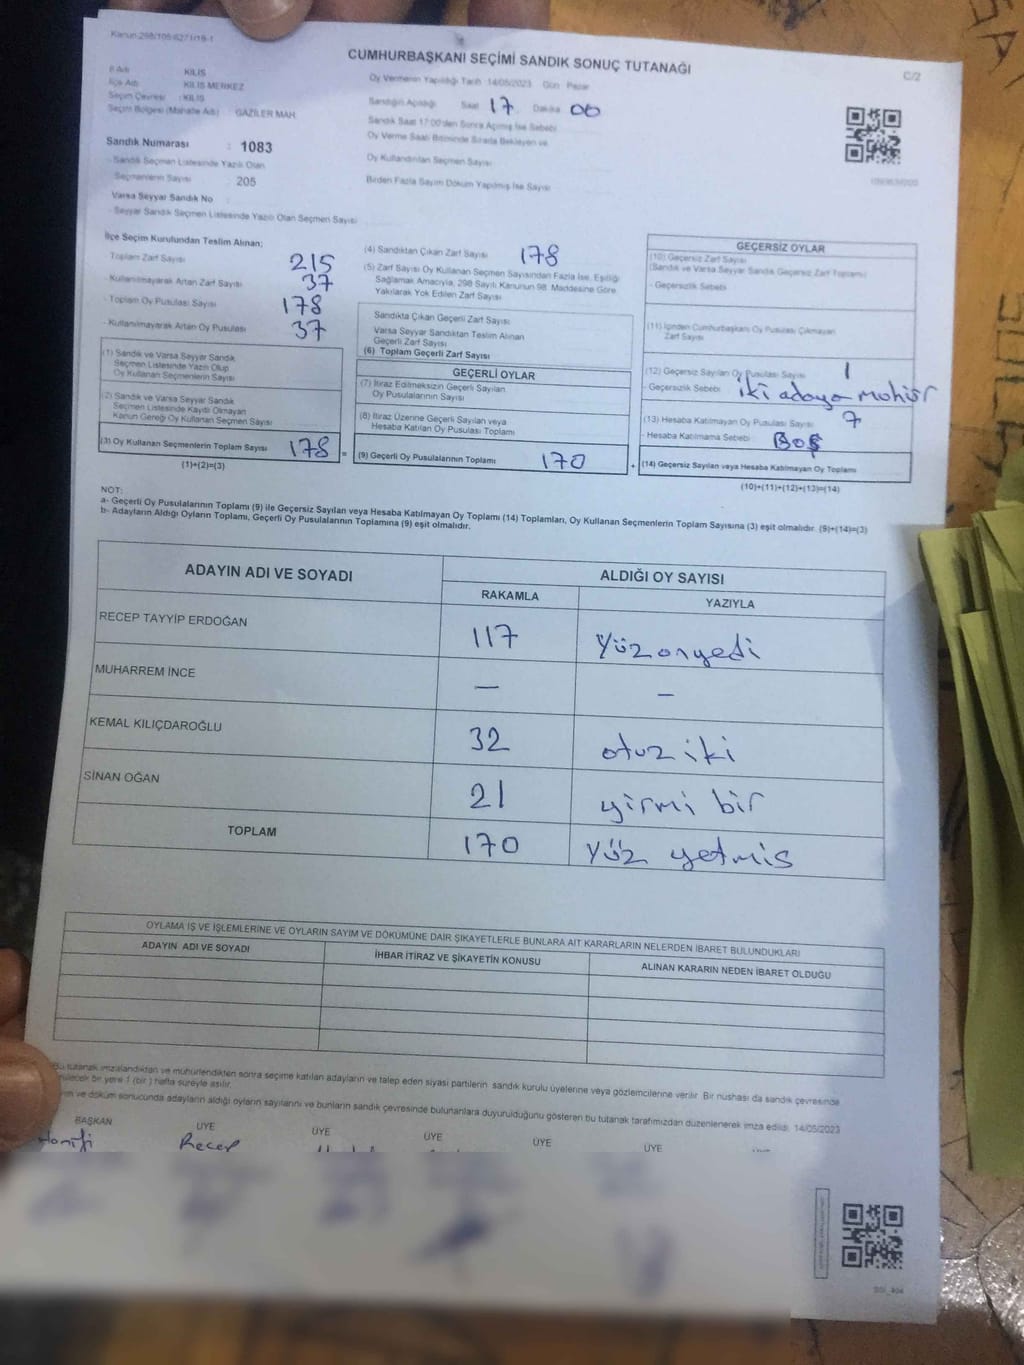 Kanun:298/105:6271/18-1
CUMHURBAŞKANI SEÇİMİ SANDIK SONUÇ TUTANAĞI
C/2
İl Adı KİLİS
İlçe Adı KİLİS MERKEZ
Seçim Çevresi : KİLİS
Seçim Bölgesi (Mahalle Adı) : GAZİLER MAH.
Oy Vermenin Yapıldığı Tarih 14/05/2023 Gün Pazar
Sandığın Açıldığı Saat 17 Dakika 00
Sandık Saat 17:00'den Sonra Açılmış İse Sebebi
Oy Verme Saati Bitiminde Sırada Bekleyen ve
Oy Kullandırılan Seçmen Sayısı
Birden Fazla Sayım Döküm Yapılmış İse Sayısı
Sandık Numarası : 1083
- Sandık Seçmen Listesinde Yazılı Olan
Seçmenlerin Sayısı : 205
Varsa Seyyar Sandık No
- Seyyar Sandık Seçmen Listesinde Yazılı Olan Seçmen Sayısı
İlçe Seçim Kurulundan Teslim Alınan;
Toplam Zarf Sayısı 215
- Kullanılmayarak Artan Zarf Sayısı 37
- Toplam Oy Pusulası Sayısı 178
- Kullanılmayarak Artan Oy Pusulası 37
(1) Sandık ve Varsa Seyyar Sandık
Seçmen Listesinde Yazılı Olup
Oy Kullanan Seçmenlerin Sayısı
(2) Sandık ve Varsa Seyyar Sandık
Seçmen Listesinde Kayıtlı Olmayan
Kanun Gereği Oy Kullanan Seçmen Sayısı
(3) Oy Kullanan Seçmenlerin Toplam Sayısı 178
(1)+(2)=(3)
(4) Sandıktan Çıkan Zarf Sayısı 178
(5) Zarf Sayısı Oy Kullanan Seçmen Sayısından Fazla İse, Eşitliği
Sağlamak Amacıyla, 298 Sayılı Kanunun 98. Maddesine Göre
Yakılarak Yok Edilen Zarf Sayısı
Sandıkta Çıkan Geçerli Zarf Sayısı
Varsa Seyyar Sandıktan Teslim Alınan
Geçerli Zarf Sayısı
(6) Toplam Geçerli Zarf Sayısı
GEÇERLİ OYLAR
(7) İtiraz Edilmeksizin Geçerli Sayılan
Oy Pusulalarının Sayısı
(8) İtiraz Üzerine Geçerli Sayılan veya
Hesaba Katılan Oy Pusulası Toplamı
= (9) Geçerli Oy Pusulalarının Toplamı 170
GEÇERSİZ OYLAR
(10) Geçersiz Zarf Sayısı
(Sandık ve Varsa Seyyar Sandık Geçersiz Zarf Toplamı)
- Geçersizlik Sebebi
(11) İçinden Cumhurbaşkanı Oy Pusulası Çıkmayan
Zarf Sayısı
(12) Geçersiz Sayılan Oy Pusulası Sayısı 1
- Geçersizlik Sebebi : iki adaya mühür
(13) Hesaba Katılmayan Oy Pusulası Sayısı 7
- Hesaba Katılmama Sebebi : BOŞ
+ (14) Geçersiz Sayılan veya Hesaba Katılmayan Oy Toplamı
(10)+(11)+(12)+(13)=(14)
NOT:
a- Geçerli Oy Pusulalarının Toplamı (9) ile Geçersiz Sayılan veya Hesaba Katılmayan Oy Toplamı (14) Toplamları, Oy Kullanan Seçmenlerin Toplam Sayısına (3) eşit olmalıdır. (9)+(14)=(3)
b- Adayların Aldığı Oyların Toplamı, Geçerli Oy Pusulalarının Toplamına (9) eşit olmalıdır.
ADAYIN ADI VE SOYADI ALDIĞI OY SAYISI
RAKAMLA YAZIYLA
RECEP TAYYİP ERDOĞAN 117 Yüzonyedi
MUHARREM İNCE — —
KEMAL KILIÇDAROĞLU 32 otuz iki
SİNAN OĞAN 21 yirmi bir
TOPLAM 170 Yüz yetmis
OYLAMA İŞ VE İŞLEMLERİNE VE OYLARIN SAYIM VE DÖKÜMÜNE DAİR ŞİKAYETLERLE BUNLARA AİT KARARLARIN NELERDEN İBARET BULUNDUKLARI
ADAYIN ADI VE SOYADI İHBAR İTİRAZ VE ŞİKAYETİN KONUSU ALINAN KARARIN NEDEN İBARET OLDUĞU
Bu tutanak imzalandıktan ve mühürlendikten sonra seçime katılan adayların ve talep eden siyasi partilerin sandık kurulu üyelerine veya gözlemcilerine verilir. Bir nüshası da sandık çevresinde
bir yere 1 (bir) hafta süreyle asılır.
ve döküm sonucunda adayların aldığı oyların sayılarını ve bunların sandık çevresinde bulunanlara duyurulduğunu gösteren bu tutanak tarafımızdan düzenlenerek imza edildi. 14/05/2023
BAŞKAN ÜYE ÜYE ÜYE ÜYE ÜYE
Hanifi Recep